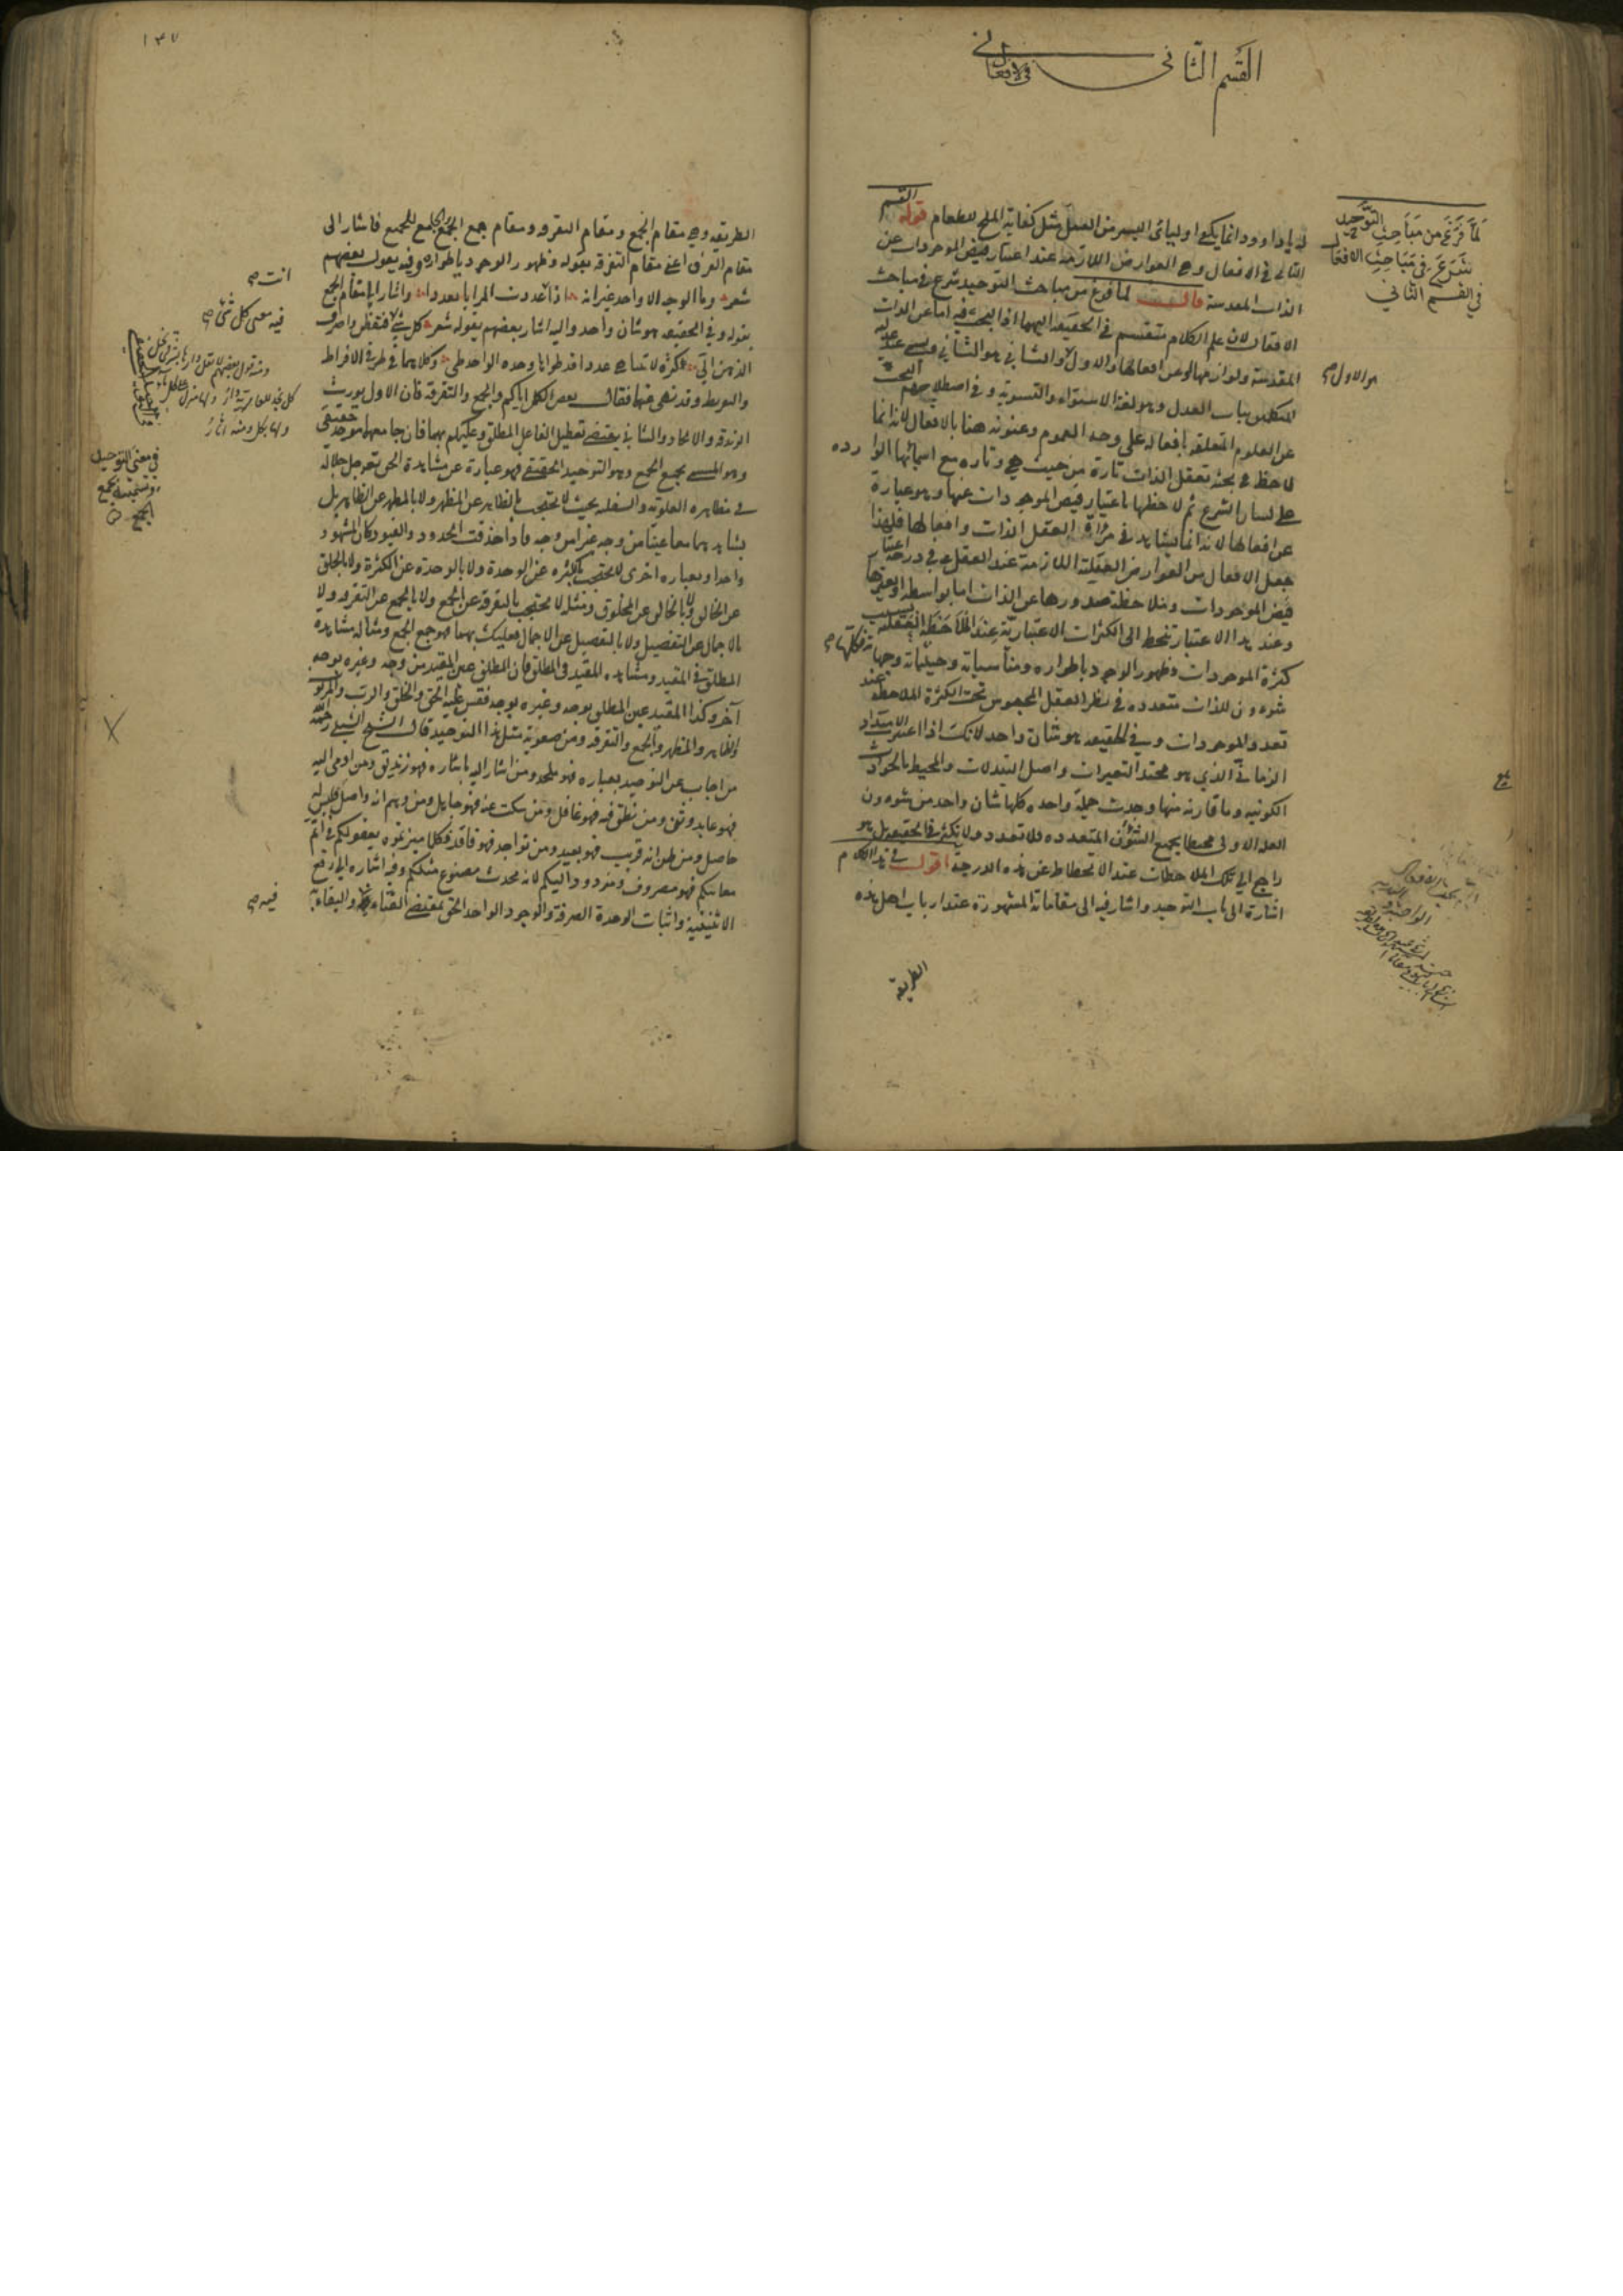 القسم الثاني
في الافعال
لما فرغ من مباحث التوحيد
شرع في مباحث الافعال
في القسم الثاني
له يا داوود انما يكفي اوليائي اليسير من العمل مثل كفاية الملح للطعام قوله القسم
الثاني في الافعال وهي العوارض اللازمة عند اعتبار فيض الموجودات عن
الذات المقدسة قال لما فرغ من مباحث التوحيد شرع في مباحث
الافعال لان علم الكلام منقسم في الحقيقة اليهما اذ البحث فيه اما عن الذات
المقدسة ولوازمها او عن افعالها والاول والثاني هو الثاني ويسمى عند
هو الاول
المتكلمين بباب العدل وهو لغة الاستواء والتسوية وفي اصطلاحهم البحث
عن العلوم المتعلقة بافعاله على وجه العموم وعنونه هنا بالافعال لانه انما
لاحظ في بحثه تعقل الذات تارة من حيث هي وتارة مع اسمائها الواردة
على لسان الشرع ثم لاحظها باعتبار فيض الموجودات عنها وهو عبارة
عن افعالها لانه انما يشاهد في مرآة العقل الذات وافعالها فلهذا
جعل الافعال من العوارض العقلية اللازمة عند العقل في درجة اعتبار
فيض الموجودات وملاحظة صدورها عن الذات اما بواسطة او بغيرها
وعند هذا الاعتبار تنحط الى الكثرات الاعتبارية عند الملاحظة العقلية بسبب
كثرة الموجودات وظهور الوجود باطواره ومناسباته وحيثياته وجهاته
شوءون للذات متعددة في نظر العقل المحبوس تحت الكثرة الملاحظة عند
تعدد الموجودات وفي الحقيقة هو شان واحد لانك اذا اعتبرت الامتداد
الزماني الذي هو محتد التغيرات واصل التبدلات والمحيط بالحوادث
الكونية وما قارنه منها وجدت جملة واحدة كلها شان واحد من شوءون
العلة الاولى محيطا بجميع الشئون المتعددة فلا تعدد ولا تكثر في الحقيقة بل هو
راجع الى تلك الملاحظات عند الانحطاط عن هذه الدرجة اقول في هذا الكلام
اشارة الى باب التوحيد واشار فيه الى مقاماته المشهورة عند ارباب اهل هذه
الطريقة
١٣٧
الطريقة وهي مقام الجمع ومقام التفرقة ومقام جمع الجمع الجامع للجميع فاشار الى
مقام الفرق اعني مقام التفرقة بقوله وظهور الوجود باطواره وفيه يقول بعضهم
شعر وما الوجه الا واحد غير انه اذا عددت المرايا تعددا واشار الى مقام الجمع
انت
بقوله وفي الحقيقة هو شان واحد واليه اشار بعضهم بقوله شعر كل شيء فتفطن واصرف
فيه معنى كل شي
الذهن الي كثرة لا تتناهى عددا قد طوتها وحدة الواحد طي وكلاهما في طرفي الافراط
والتفريط وقد نهي عنها فقال بعض الكمل اياكم والجمع والتفرقة فان الاول يورث
الزندقة والالحاد والثاني يقتضي تعطيل الفاعل المطلق وعليكم بهما فان جامعهما موحد حقيقي
وهو المسمى بجمع الجمع وهو التوحيد الحقيقي فهو عبارة عن مشاهدة الحق تعالى جل جلاله
في معنى التوحيد
في مظاهره العلوية والسفلية بحيث لا يحتجب بالظاهر عن المظهر ولا بالمظهر عن الظاهر بل
يشاهدهما معا عينا من وجه غيرا من وجه فاذا خذقت الحدود والقيود كان المشهود
واحدا وبعبارة اخرى لا يحتجب بالكثرة عن الوحدة ولا بالوحدة عن الكثرة ولا بالخلق
عن الخالق ولا بالخالق عن المخلوق ومثله لا يحتجب بالتفرقة عن الجمع ولا بالجمع عن التفرقة ولا
بالاجمال عن التفصيل ولا بالتفصيل عن الاجمال فعليك بهما فهو جمع الجمع ومثاله مشاهدة
المطلق في المقيد ومشاهدة المقيد في المطلق فان المطلق عين المقيد من وجه وغيره بوجه
آخر وكذا المقيد عين المطلق بوجه وغيره بوجه فقس عليه الحق والخلق والرب والمربوب
والظاهر والمظهر والجمع والتفرقة ومن صعوبة مثل هذا التوحيد قال الشيخ الشبلي رحمه الله
من اجاب عن التوحيد بعبارة فهو ملحد ومن اشار اليه باشارة فهو زنديق ومن اومى اليه
فهو عابد وثن ومن نطق فيه فهو غافل ومن سكت عنه فهو جاهل ومن وهم انه واصل فليس له
حاصل ومن ظن انه قريب فهو بعيد ومن تواجد فهو فاقد فكلما ميزتموه بعقولكم في اتم
معانيكم فهو مصروف ومردود اليكم لانه محدث مصنوع مثلكم وفيه اشارة الى رفع
الاثنينية واثبات الوحدة الصرفة والوجود الواحد الحق بمقتضى الفناء والبقاء
فيه